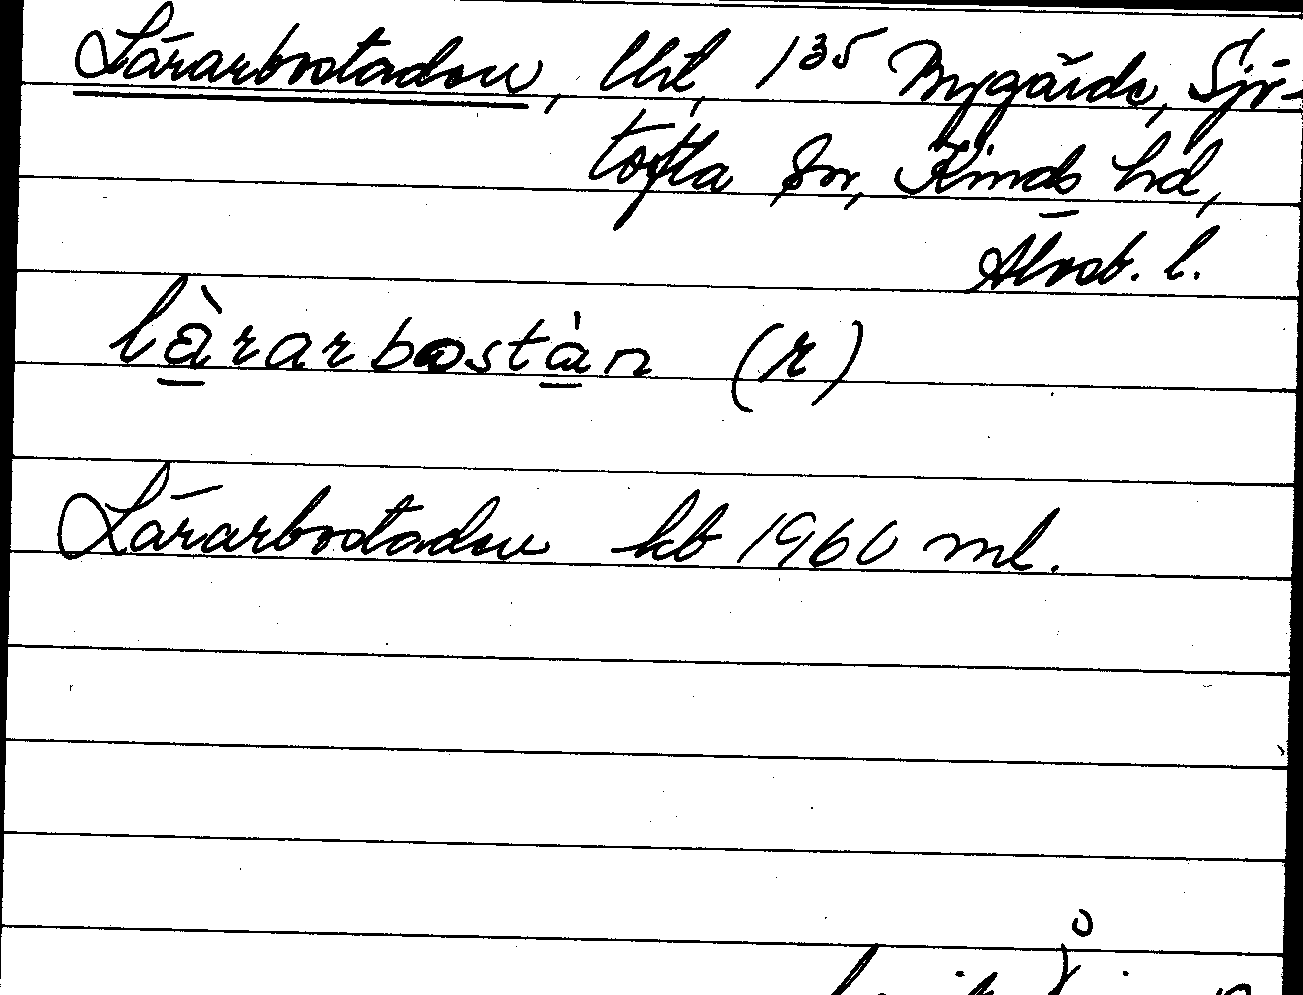 Lärarbostaden, lht, 135 Mygärde, Sjö-
tofta sn, Kinds hd,
Älvsb. l.
làrarbostàn (r)
Lärarbostaden kb 1960 ml.